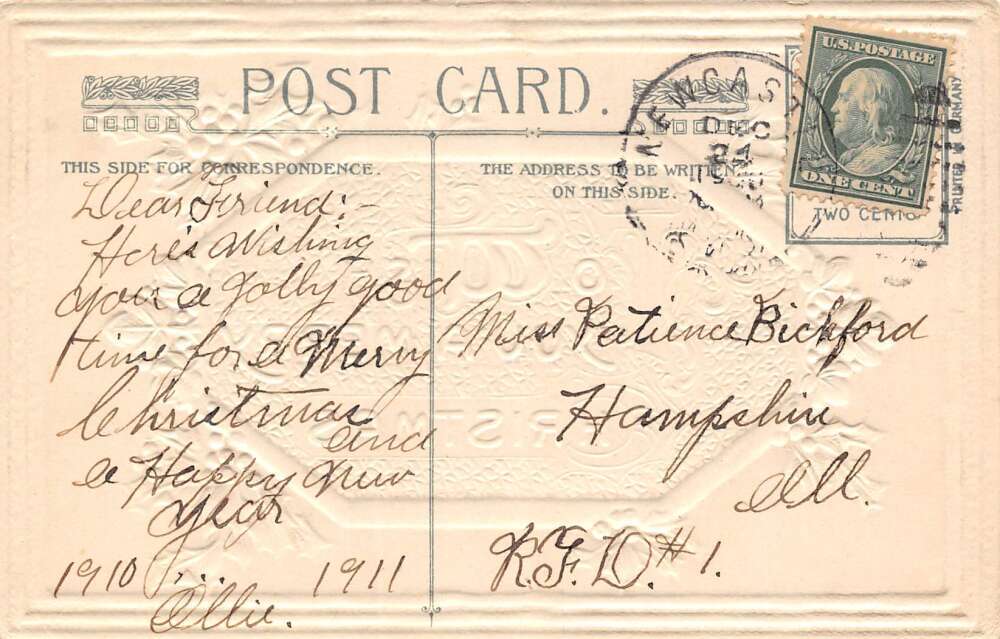 POST CARD.
THIS SIDE FOR CORRESPONDENCE.
THE ADDRESS TO BE WRITTEN
ON THIS SIDE.
U.S. POSTAGE
ONE CENT
TWO CENTS
PRINTED IN GERMANY
NEWCAS
DEC
Dear Friend:-
Here's Wishing
you a Jolly good
time for a Merry
Christmas
and
a Happy New
Year
1910 1911
Ollie.
Miss Patience Bickford
Hampshire
Ill.
R.F.D. #1.